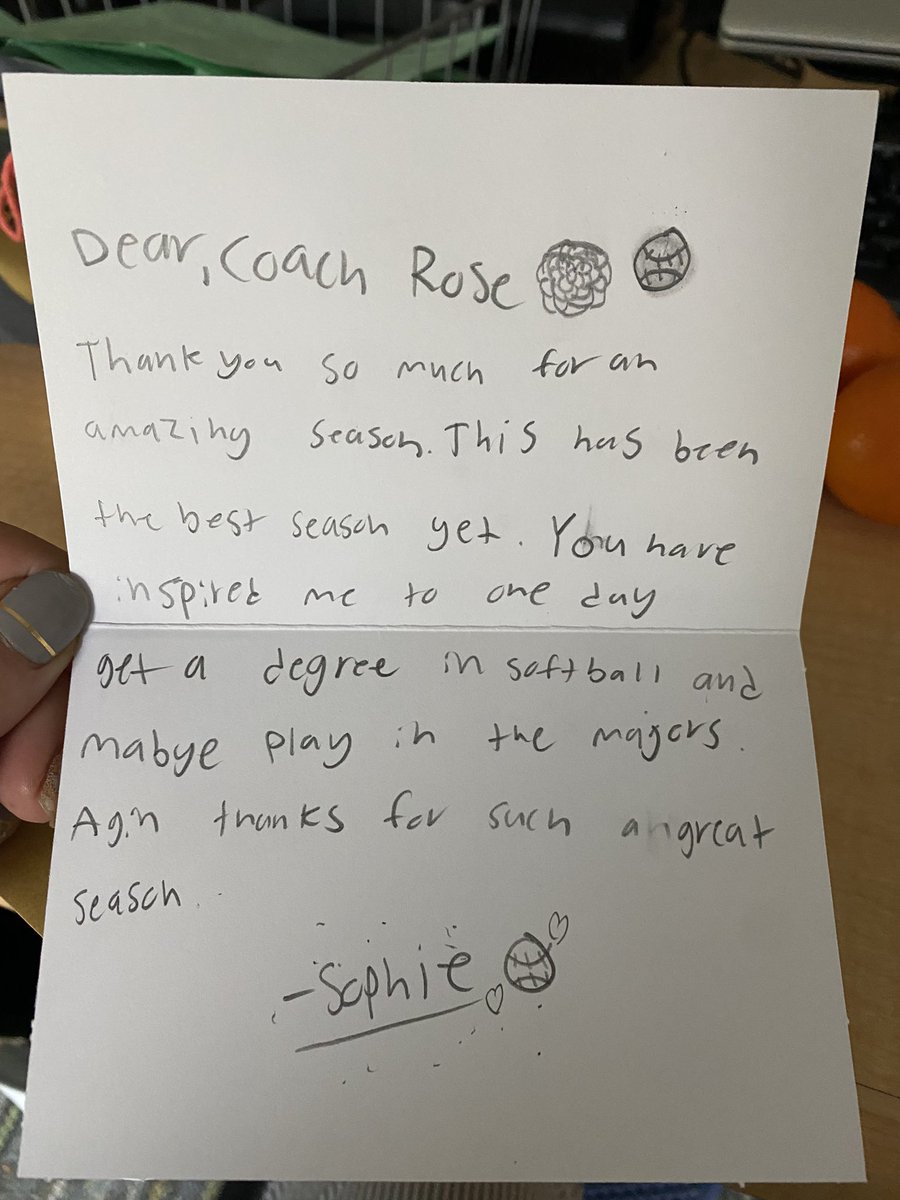 Dear, Coach Rose
Thank you so much for an
amazing season. This has been
the best season yet. You have
inspired me to one day
get a degree in softball and
mabye play in the majors.
Agin thanks for such a great
season.
-Sophie